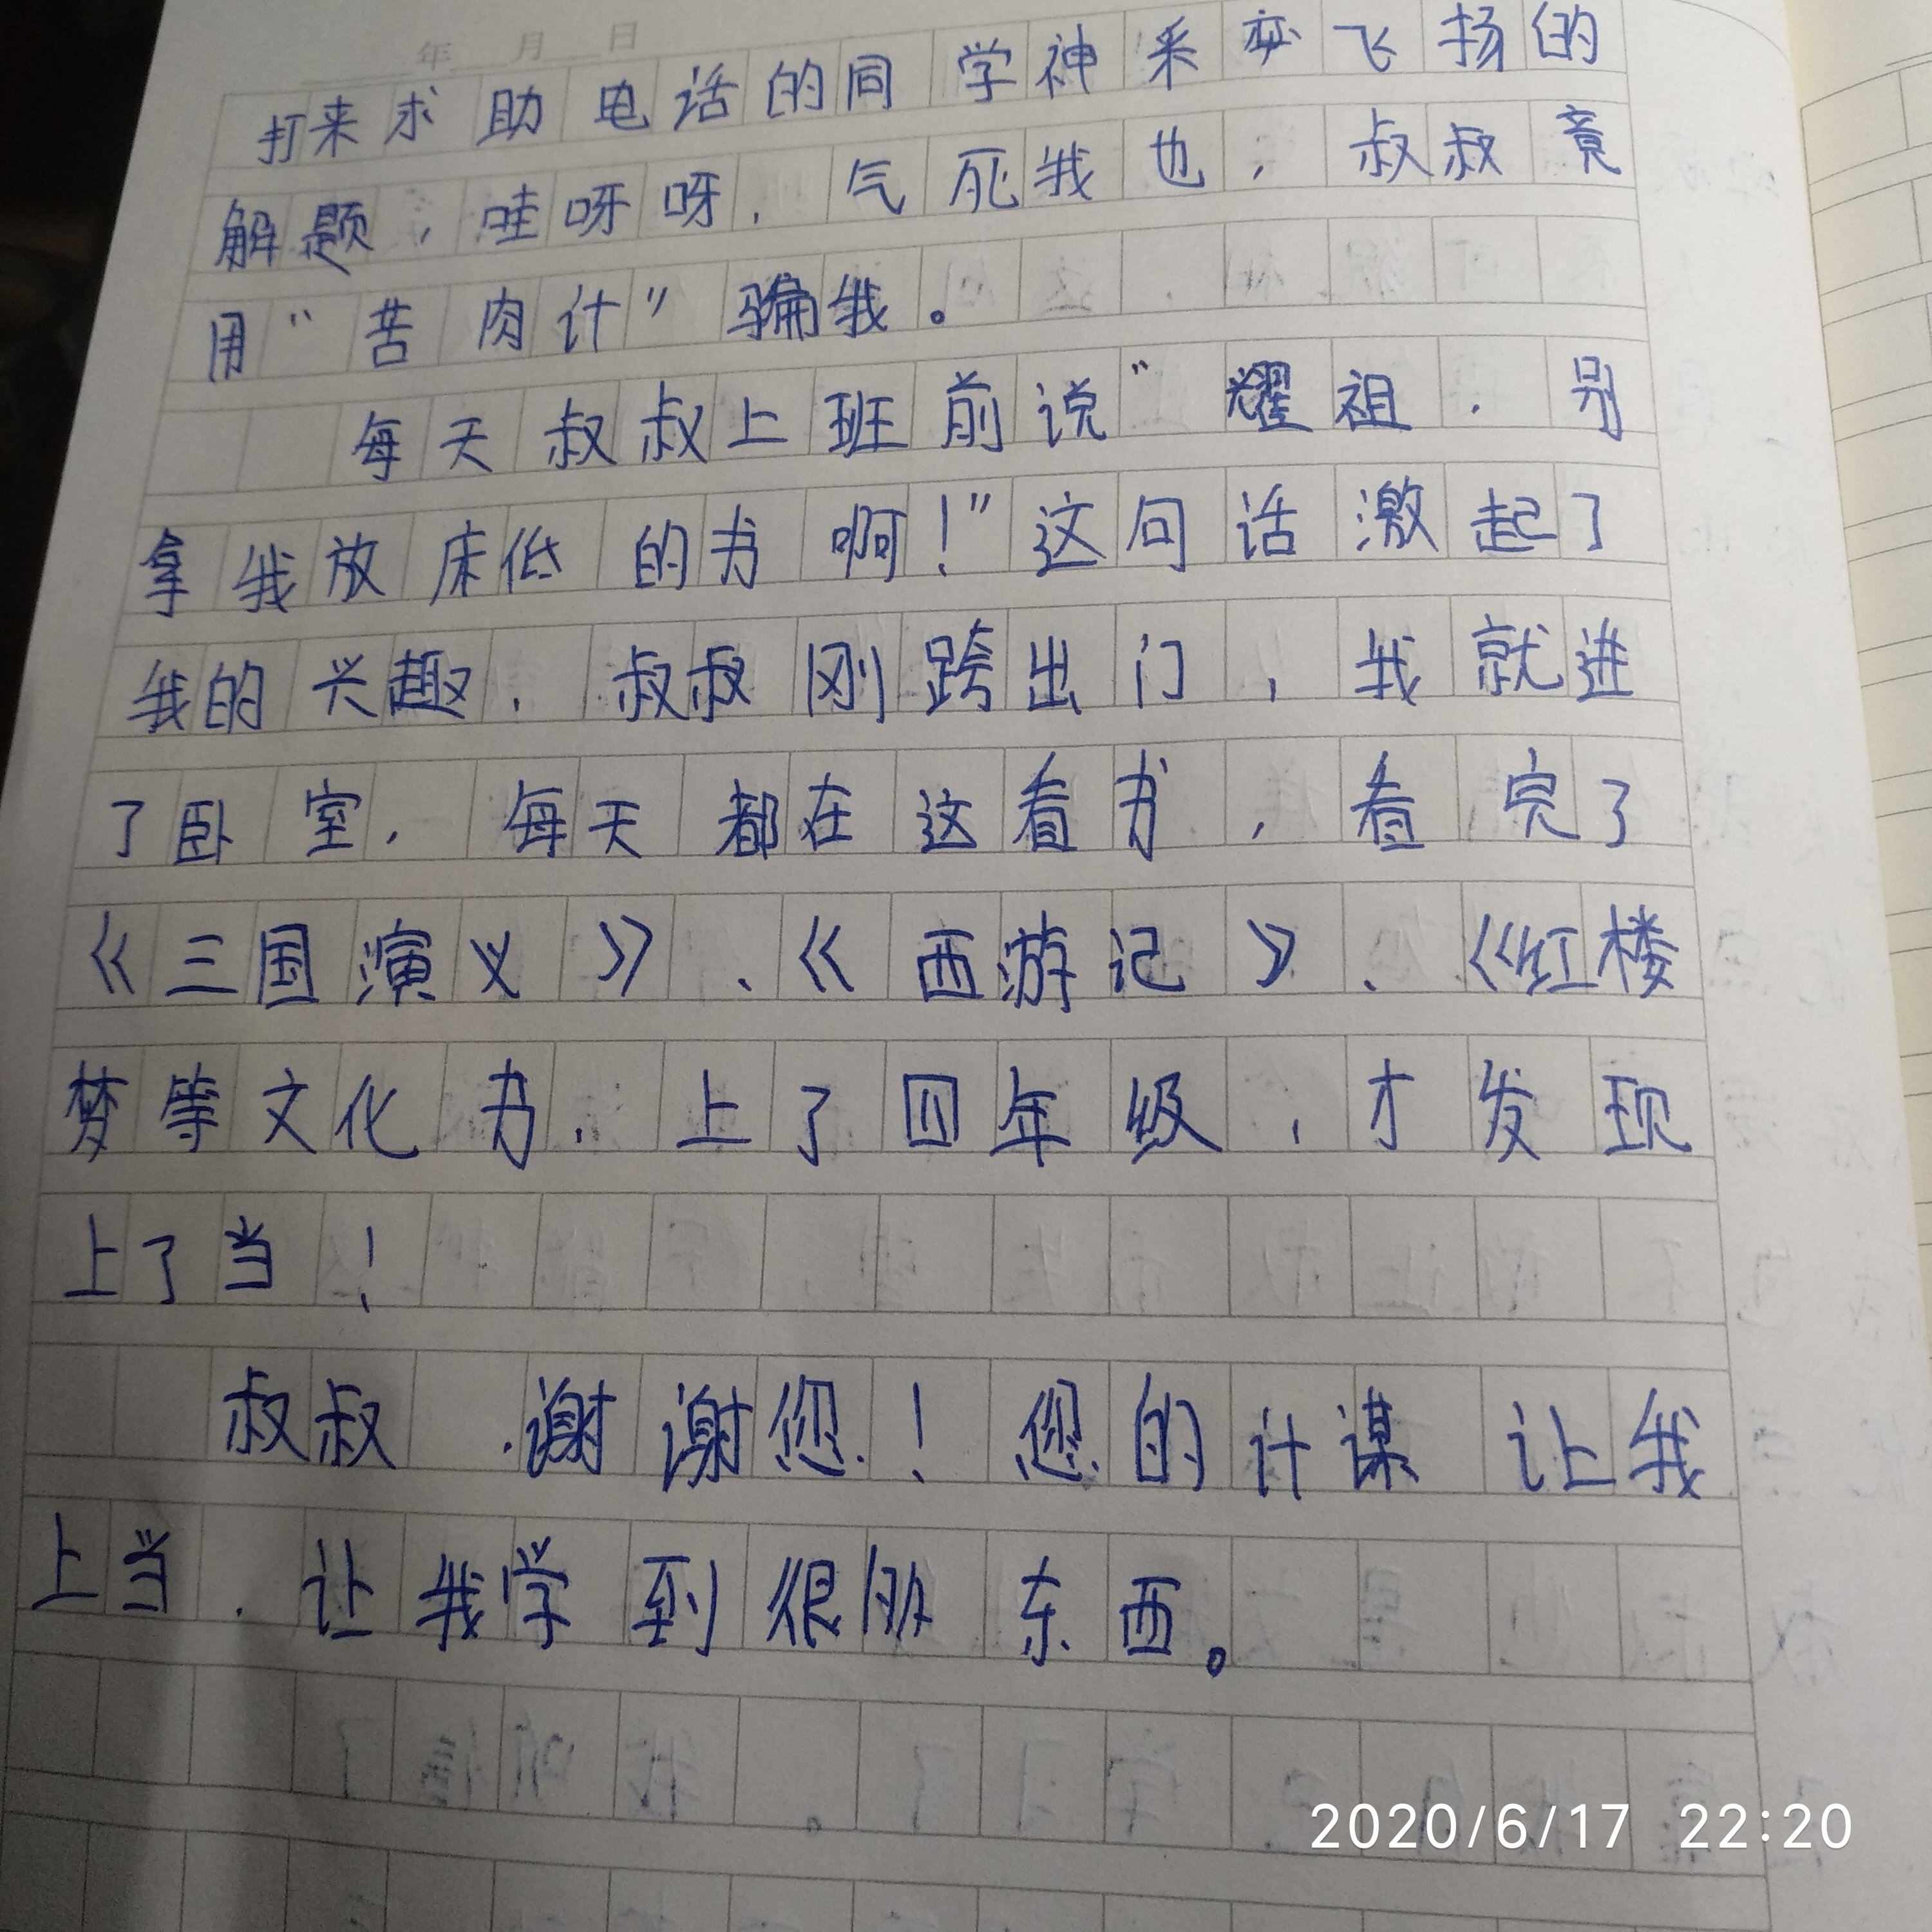 年 月 日
打来求助电话的同学神采奕飞扬的
解题，哇呀呀，气死我也，叔叔竟
用“苦肉计”骗我。
每天叔叔上班前说“耀祖，别
拿我放床低的书啊！”这句话激起了
我的兴趣，叔叔刚跨出门，我就进
了卧室，每天都在这看书，看完了
《三国演义》、《西游记》、《红楼
梦等文化书，上了四年级，才发现
上了当！
叔叔，谢谢您！您的计谋让我
上当，让我学到很多东西。
2020/6/17 22:20